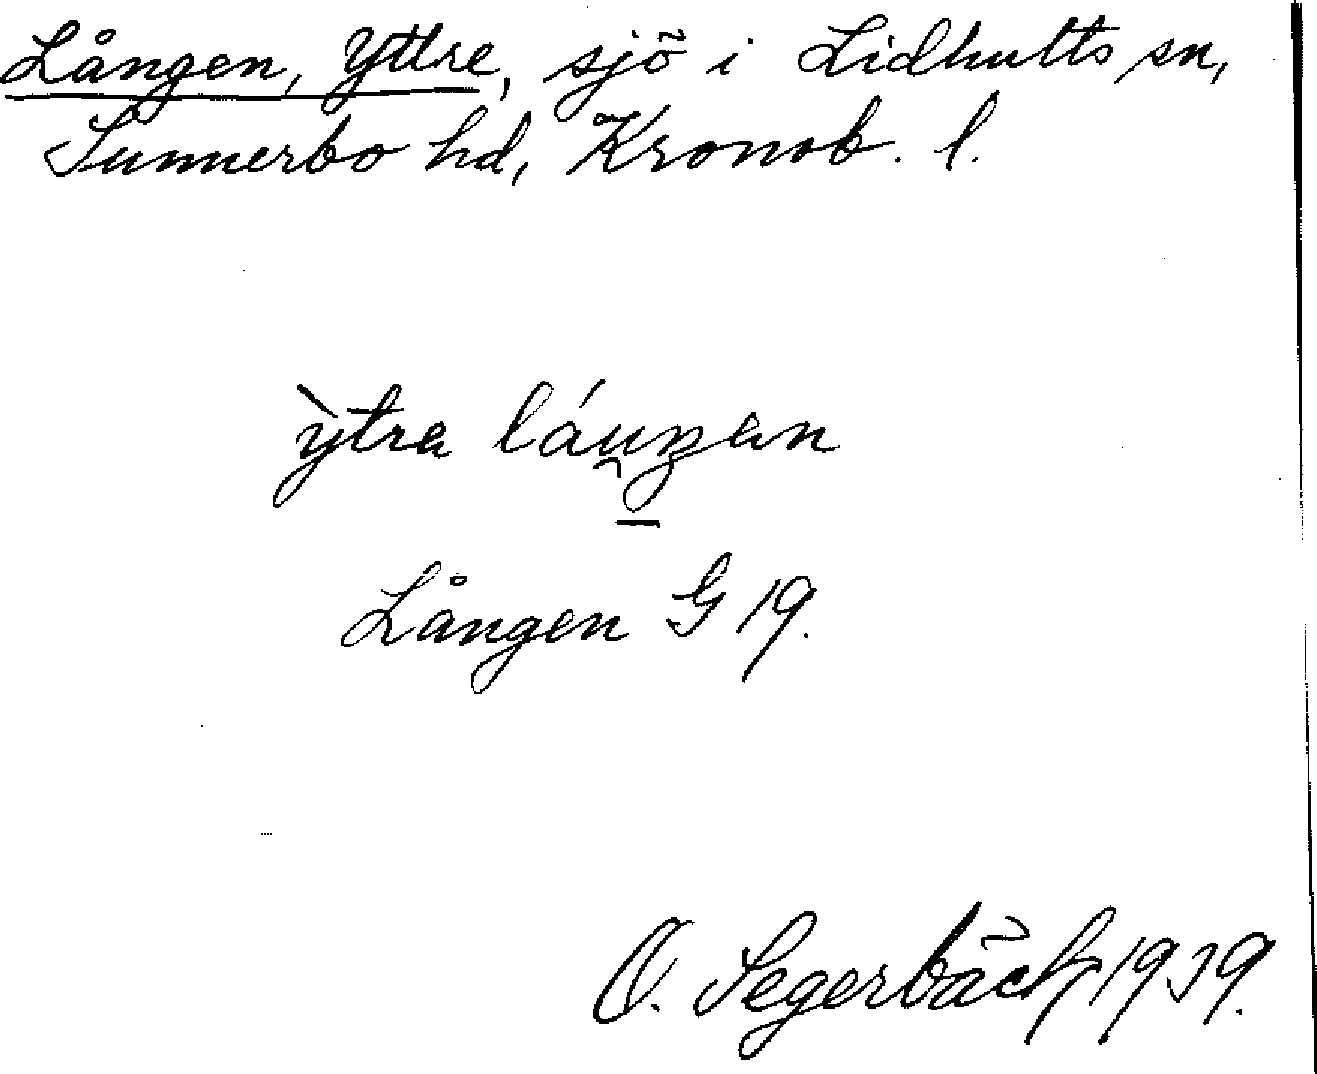 Lången, Yttre, sjö i Lidhults sn,
Sunnerbo hd, Kronob. l.
ỳtra láu̯ŋan
Lången G 19.
O. Segerbäck 1939.